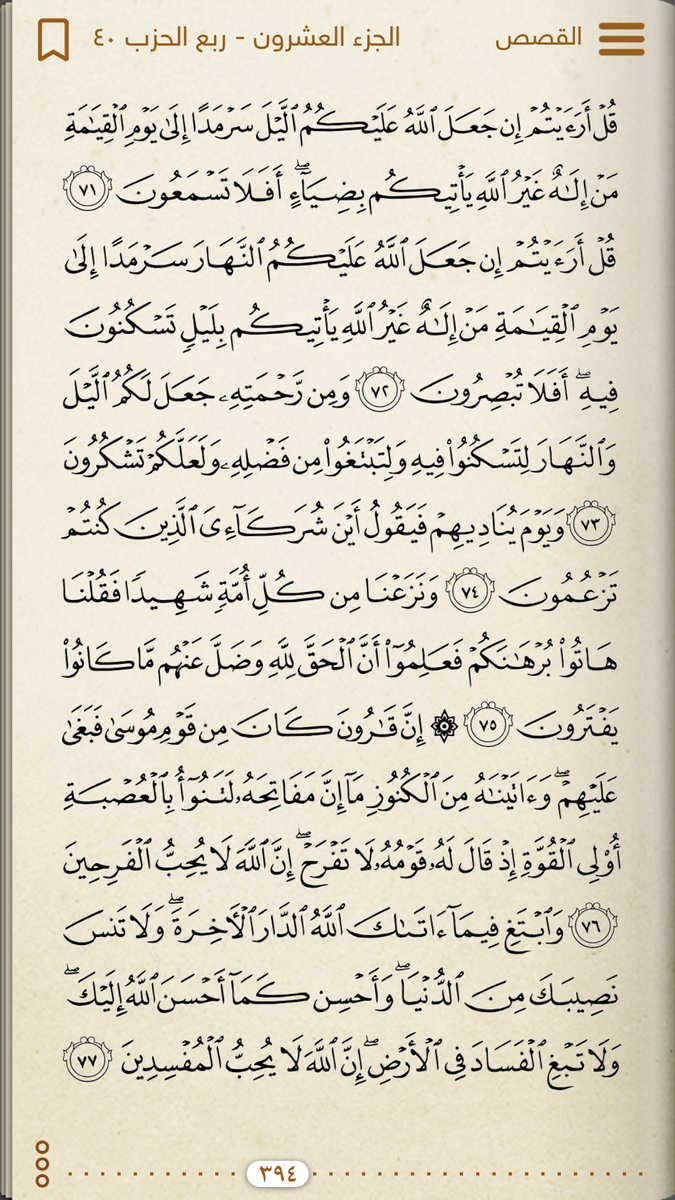 القصص
الجزء العشرون - ربع الحزب ٤٠
قُلۡ أَرَءَيۡتُمۡ إِن جَعَلَ ٱللَّهُ عَلَيۡكُمُ ٱلَّيۡلَ سَرۡمَدًا إِلَىٰ يَوۡمِ ٱلۡقِيَٰمَةِ
مَنۡ إِلَٰهٌ غَيۡرُ ٱللَّهِ يَأۡتِيكُم بِضِيَآءٍۚ أَفَلَا تَسۡمَعُونَ ٧١
قُلۡ أَرَءَيۡتُمۡ إِن جَعَلَ ٱللَّهُ عَلَيۡكُمُ ٱلنَّهَارَ سَرۡمَدًا إِلَىٰ
يَوۡمِ ٱلۡقِيَٰمَةِ مَنۡ إِلَٰهٌ غَيۡرُ ٱللَّهِ يَأۡتِيكُم بِلَيۡلٖ تَسۡكُنُونَ
فِيهِۚ أَفَلَا تُبۡصِرُونَ ٧٢ وَمِن رَّحۡمَتِهِۦ جَعَلَ لَكُمُ ٱلَّيۡلَ
وَٱلنَّهَارَ لِتَسۡكُنُواْ فِيهِ وَلِتَبۡتَغُواْ مِن فَضۡلِهِۦ وَلَعَلَّكُمۡ تَشۡكُرُونَ
٧٣ وَيَوۡمَ يُنَادِيهِمۡ فَيَقُولُ أَيۡنَ شُرَكَآءِيَ ٱلَّذِينَ كُنتُمۡ
تَزۡعُمُونَ ٧٤ وَنَزَعۡنَا مِن كُلِّ أُمَّةٖ شَهِيدٗا فَقُلۡنَا
هَاتُواْ بُرۡهَٰنَكُمۡ فَعَلِمُوٓاْ أَنَّ ٱلۡحَقَّ لِلَّهِ وَضَلَّ عَنۡهُم مَّا كَانُواْ
يَفۡتَرُونَ ٧٥ ۞ إِنَّ قَٰرُونَ كَانَ مِن قَوۡمِ مُوسَىٰ فَبَغَىٰ
عَلَيۡهِمۡۖ وَءَاتَيۡنَٰهُ مِنَ ٱلۡكُنُوزِ مَآ إِنَّ مَفَاتِحَهُۥ لَتَنُوٓأُ بِٱلۡعُصۡبَةِ
أُوْلِي ٱلۡقُوَّةِ إِذۡ قَالَ لَهُۥ قَوۡمُهُۥ لَا تَفۡرَحۡۖ إِنَّ ٱللَّهَ لَا يُحِبُّ ٱلۡفَرِحِينَ
٧٦ وَٱبۡتَغِ فِيمَآ ءَاتَىٰكَ ٱللَّهُ ٱلدَّارَ ٱلۡأٓخِرَةَۖ وَلَا تَنسَ
نَصِيبَكَ مِنَ ٱلدُّنۡيَاۖ وَأَحۡسِن كَمَآ أَحۡسَنَ ٱللَّهُ إِلَيۡكَۖ
وَلَا تَبۡغِ ٱلۡفَسَادَ فِي ٱلۡأَرۡضِۖ إِنَّ ٱللَّهَ لَا يُحِبُّ ٱلۡمُفۡسِدِينَ ٧٧
٣٩٤